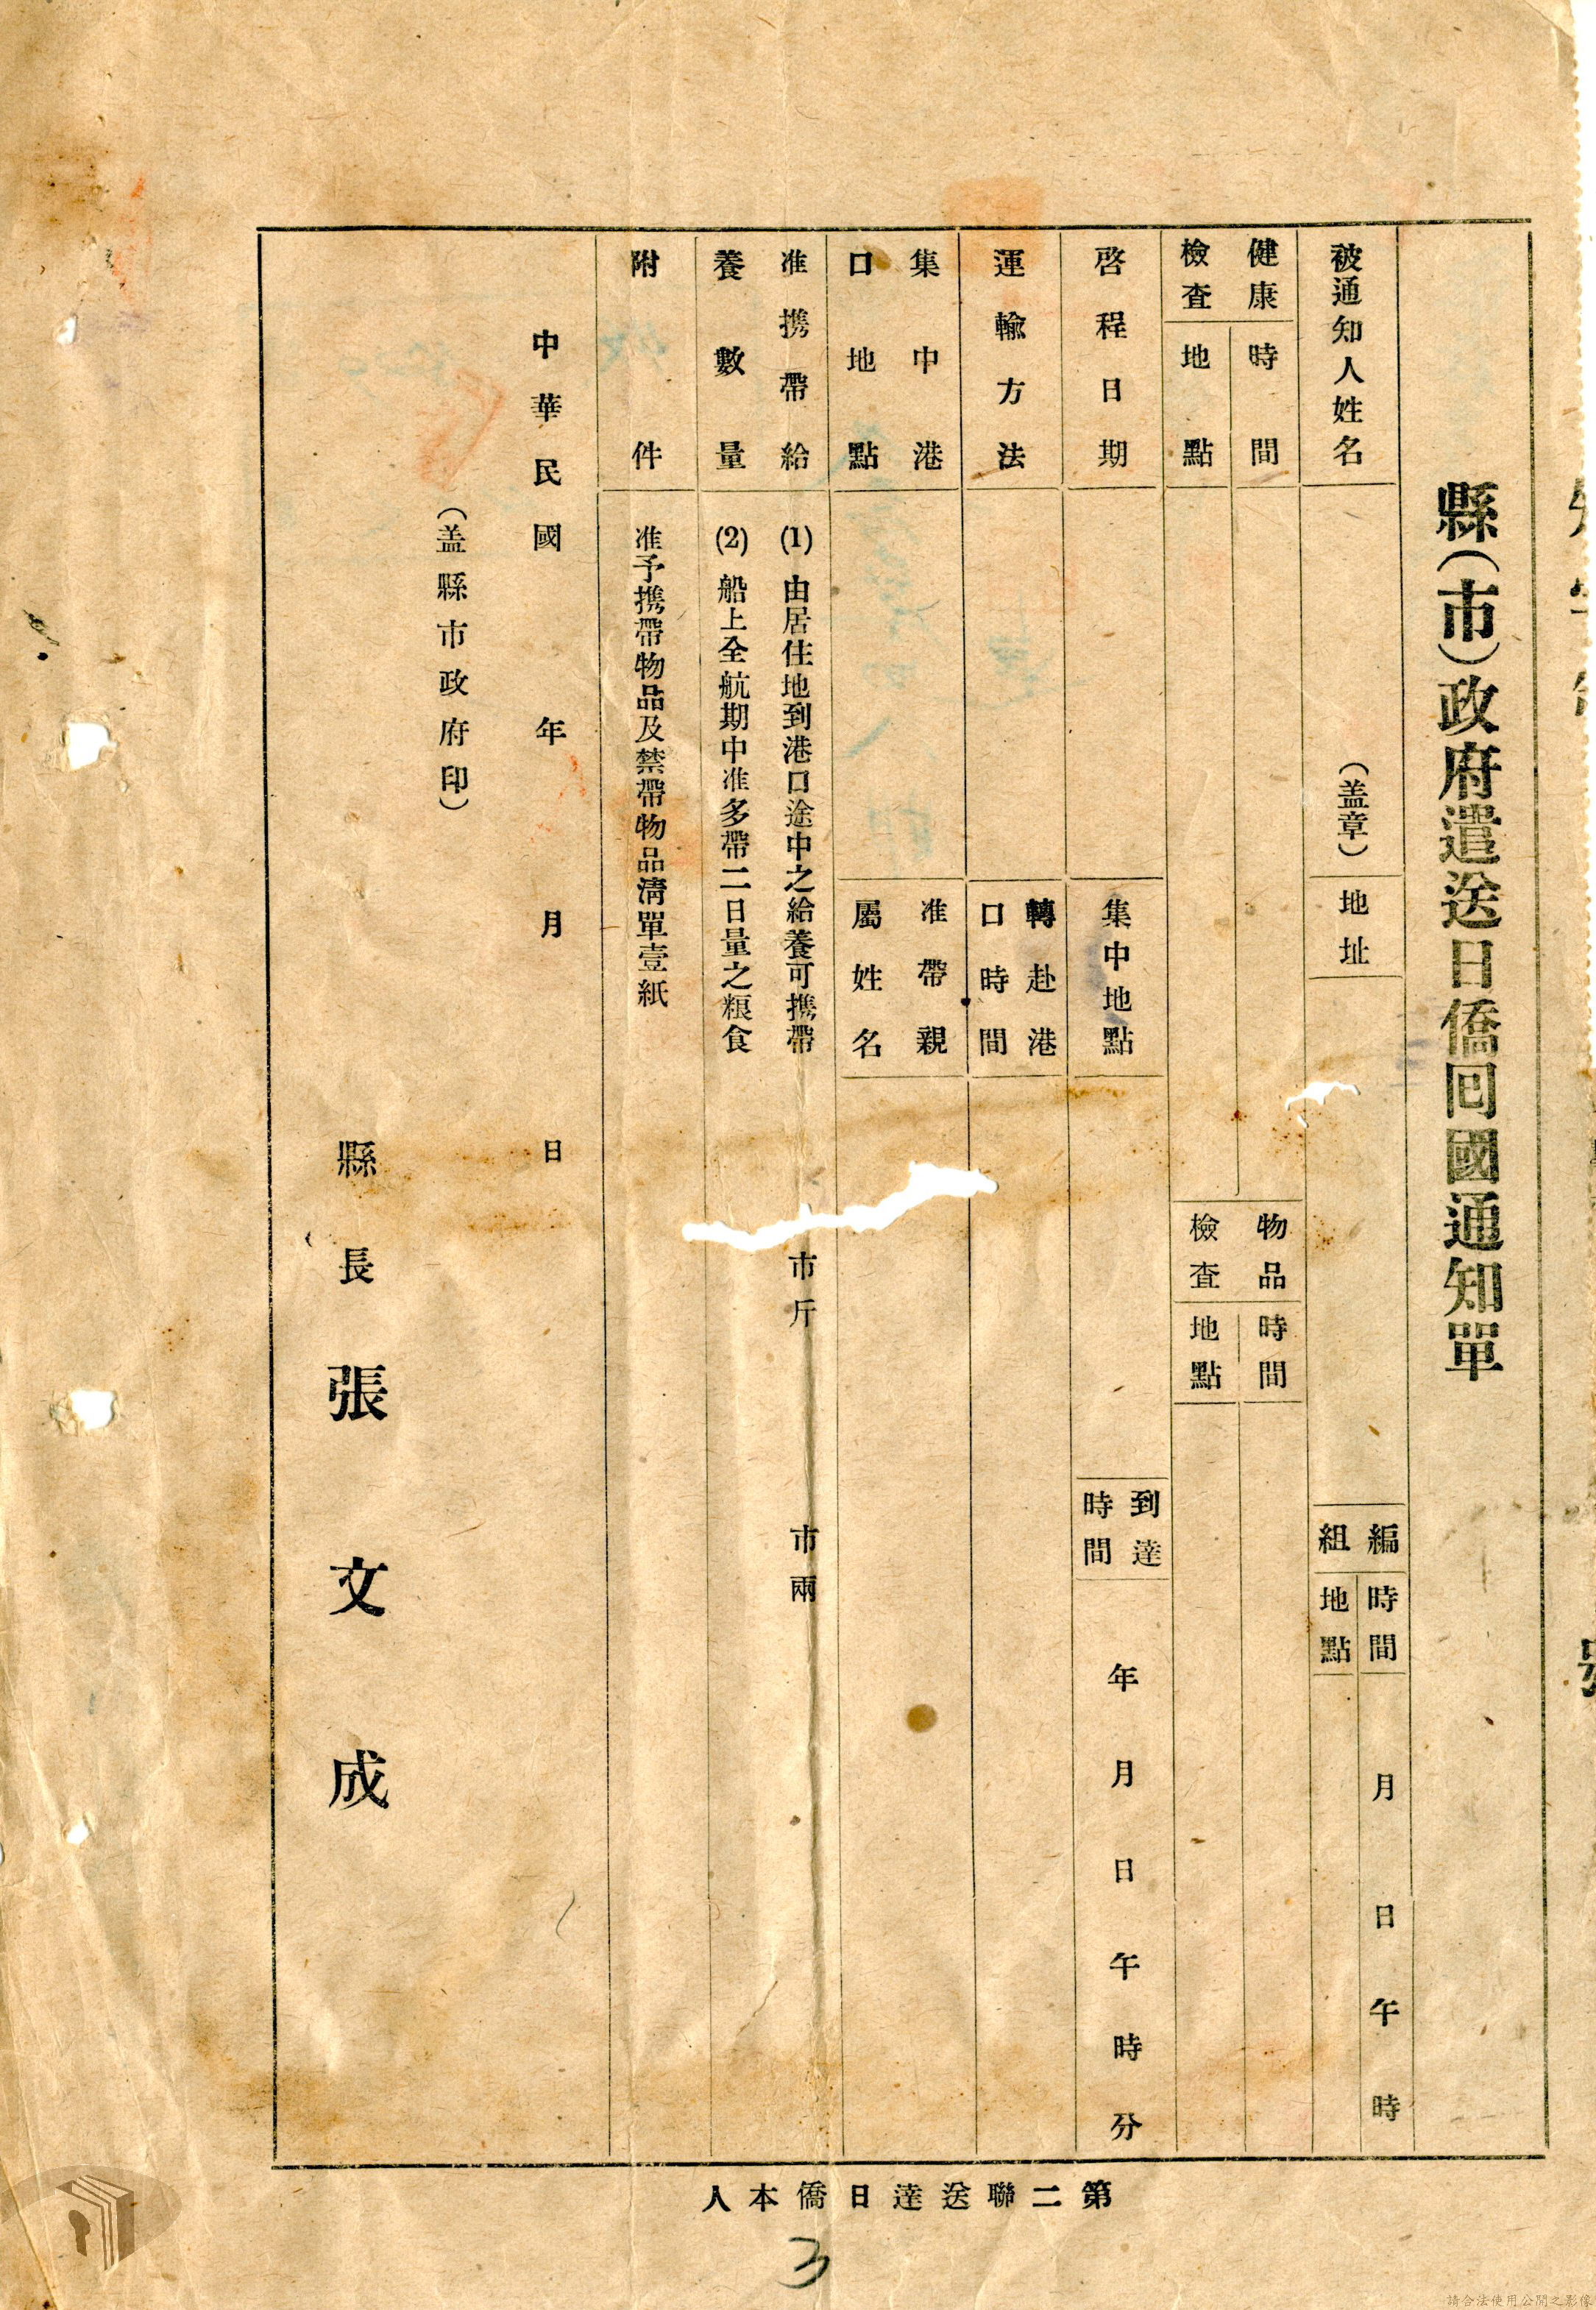 號
縣（市）政府遣送日僑回國通知單
被通知人姓名
（盖章）
地址
編組
時間
月　日　午　時
地點
健康檢查
時間
地點
物品檢查
時間
地點
啓程日期
集中地點
到達時間
年　月　日　午　時　分
運輸方法
轉赴港口時間
集中港口地點
准帶親屬姓名
准携帶給養數量
(1) 由居住地到港口途中之給養可携帶　市斤　市兩
(2) 船上全航期中准多帶二日量之粮食
附件
准予携帶物品及禁帶物品淸單壹紙
中華民國　年　月　日
（盖縣市政府印）
縣長　張文成
第二聯送達日僑本人
3
請合法使用公開之影像